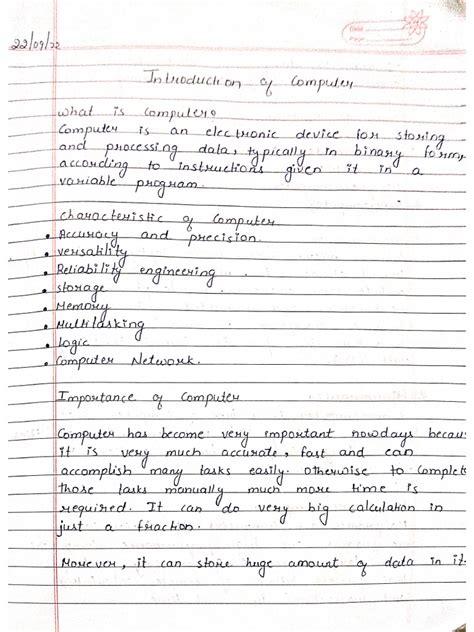 Date
Page
22/09/22
Introduction of Computer
What is Computer?
Computer is an electronic device for storing
and processing data, typically in binary form,
according to instructions given it in a
variable program.
Characteristic of Computer
• Accuracy and precision.
• versatility
• Reliability engineering
• storage
• Memory
• Multitasking
• logic
• Computer Network.
Importance of Computer
Computer has become very important nowdays becau
it is very much accurate, fast and can
accomplish many tasks easily. Otherwise to complete
those tasks manually much more time is
required. It can do very big calculation in
just a fraction.
Moreover, it can store huge amount of data in it